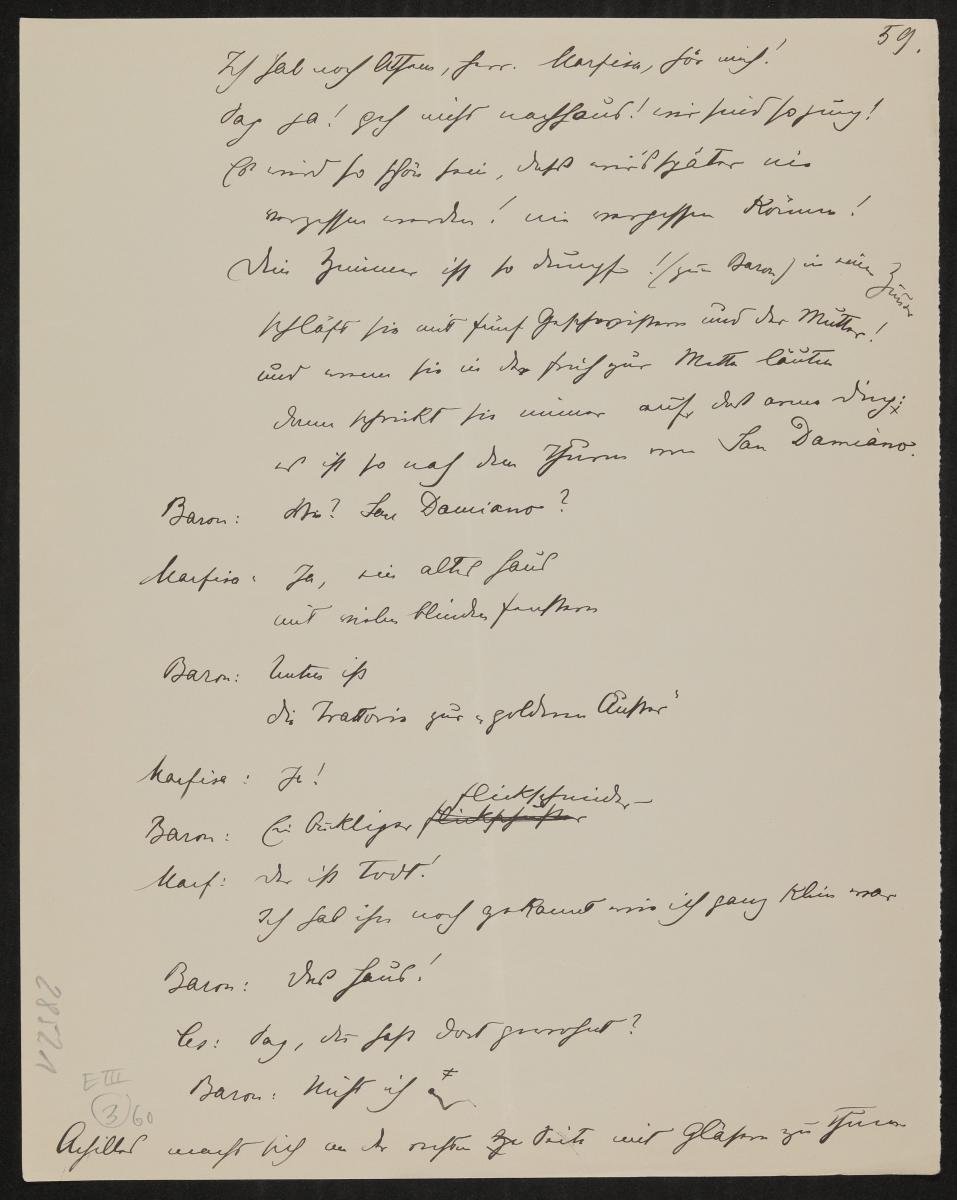 59.
Ich hab noch Athem, Herr. Marfisa, hör mich!
Sag ja! geh nicht nachhaus! wir sind so jung!
Es wird so schön sein, dass wir's später nie
vergessen werden! nie vergessen können!
Dein Zimmer ist so dumpf! (zum Baron) in einem Zimmer
schläft sie mit fünf Geschwistern und der Mutter!
und wenn sie in der früh zur Mette läuten
dann schrickt sie immer auf, das arme Ding:
es ist so nah dem Thurm von San Damiano.
Baron: Wie? San Damiano?
Marfisa: Ja, ein altes Haus
mit vielen blinden Fenstern
Baron: Unten ist
die Trattorie zur „goldenen Auster"
Marfisa: Ja!
Flickschneider –
Baron: Ein buckliger Flickschuster
Marf: der ist todt!
Ich hab ihn noch gekannt wie ich ganz klein war
Baron: Das Haus!
Ces: Sag, du hast dort gewohnt?
Baron: Nicht ich
Achilles macht sich an der rechten Seite mit Gläsern zu thuen
28521
E III
3 60